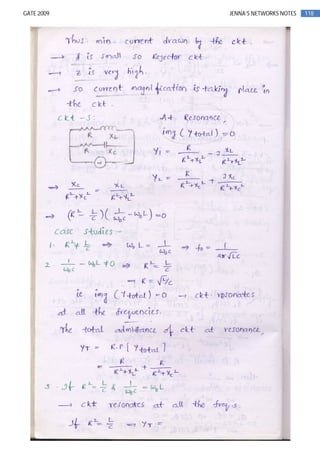 GATE 2009 JENNA'S NETWORKS NOTES 118
Thus min. current drawn by the ckt.
→ I is small so Rejector ckt
→ Z is very high.
→ so current magnification is taking place in
the ckt.
ckt - 5:
R XL
R XC
At Resonance,
img (Ytotal) = 0
Y1 = R/(R²+XL²) - j XL/(R²+XL²)
Y2 = R/(R²+XC²) + j XC/(R²+XC²)
→ XC/(R²+XC²) = XL/(R²+XL²)
→ (R² - L/C)(1/ω0C - ω0L) = 0
case studies :-
1. R² ≠ L/C ⇒ ω0L = 1/ω0C ⇒ f0 = 1/2π√LC
2. 1/ω0C - ω0L ≠ 0 ⇒ R² = L/C
→ R = √L/C
ie img (Ytotal) = 0 → ckt resonates
at all the frequencies.
The total admittance of ckt at resonance,
YT = R.P [Ytotal]
= R/(R²+XL²) + R/(R²+XC²)
3. If R² = L/C & 1/ω0C = ω0L
→ ckt resonates at all the freq.s.
If R² = L/C ⇒ YT =